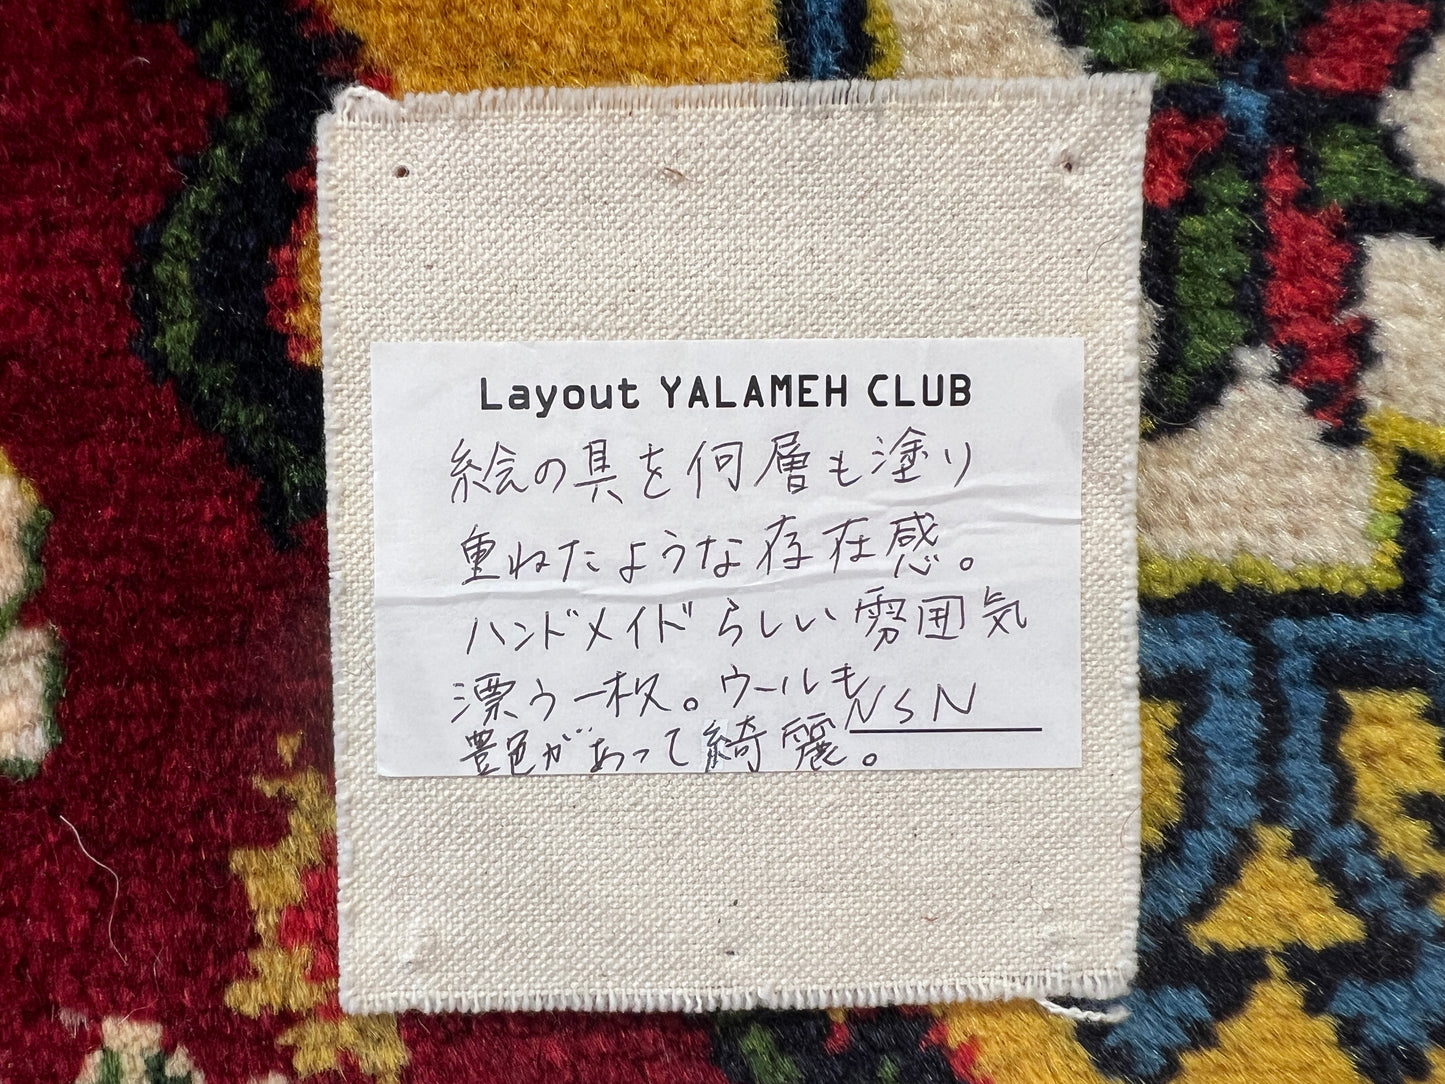 Layout YALAMEH CLUB
絵の具を何層も塗り
重ねたような存在感。
ハンドメイドらしい雰囲気
漂う一枚。ウールも
NSN
艶色があって綺麗。